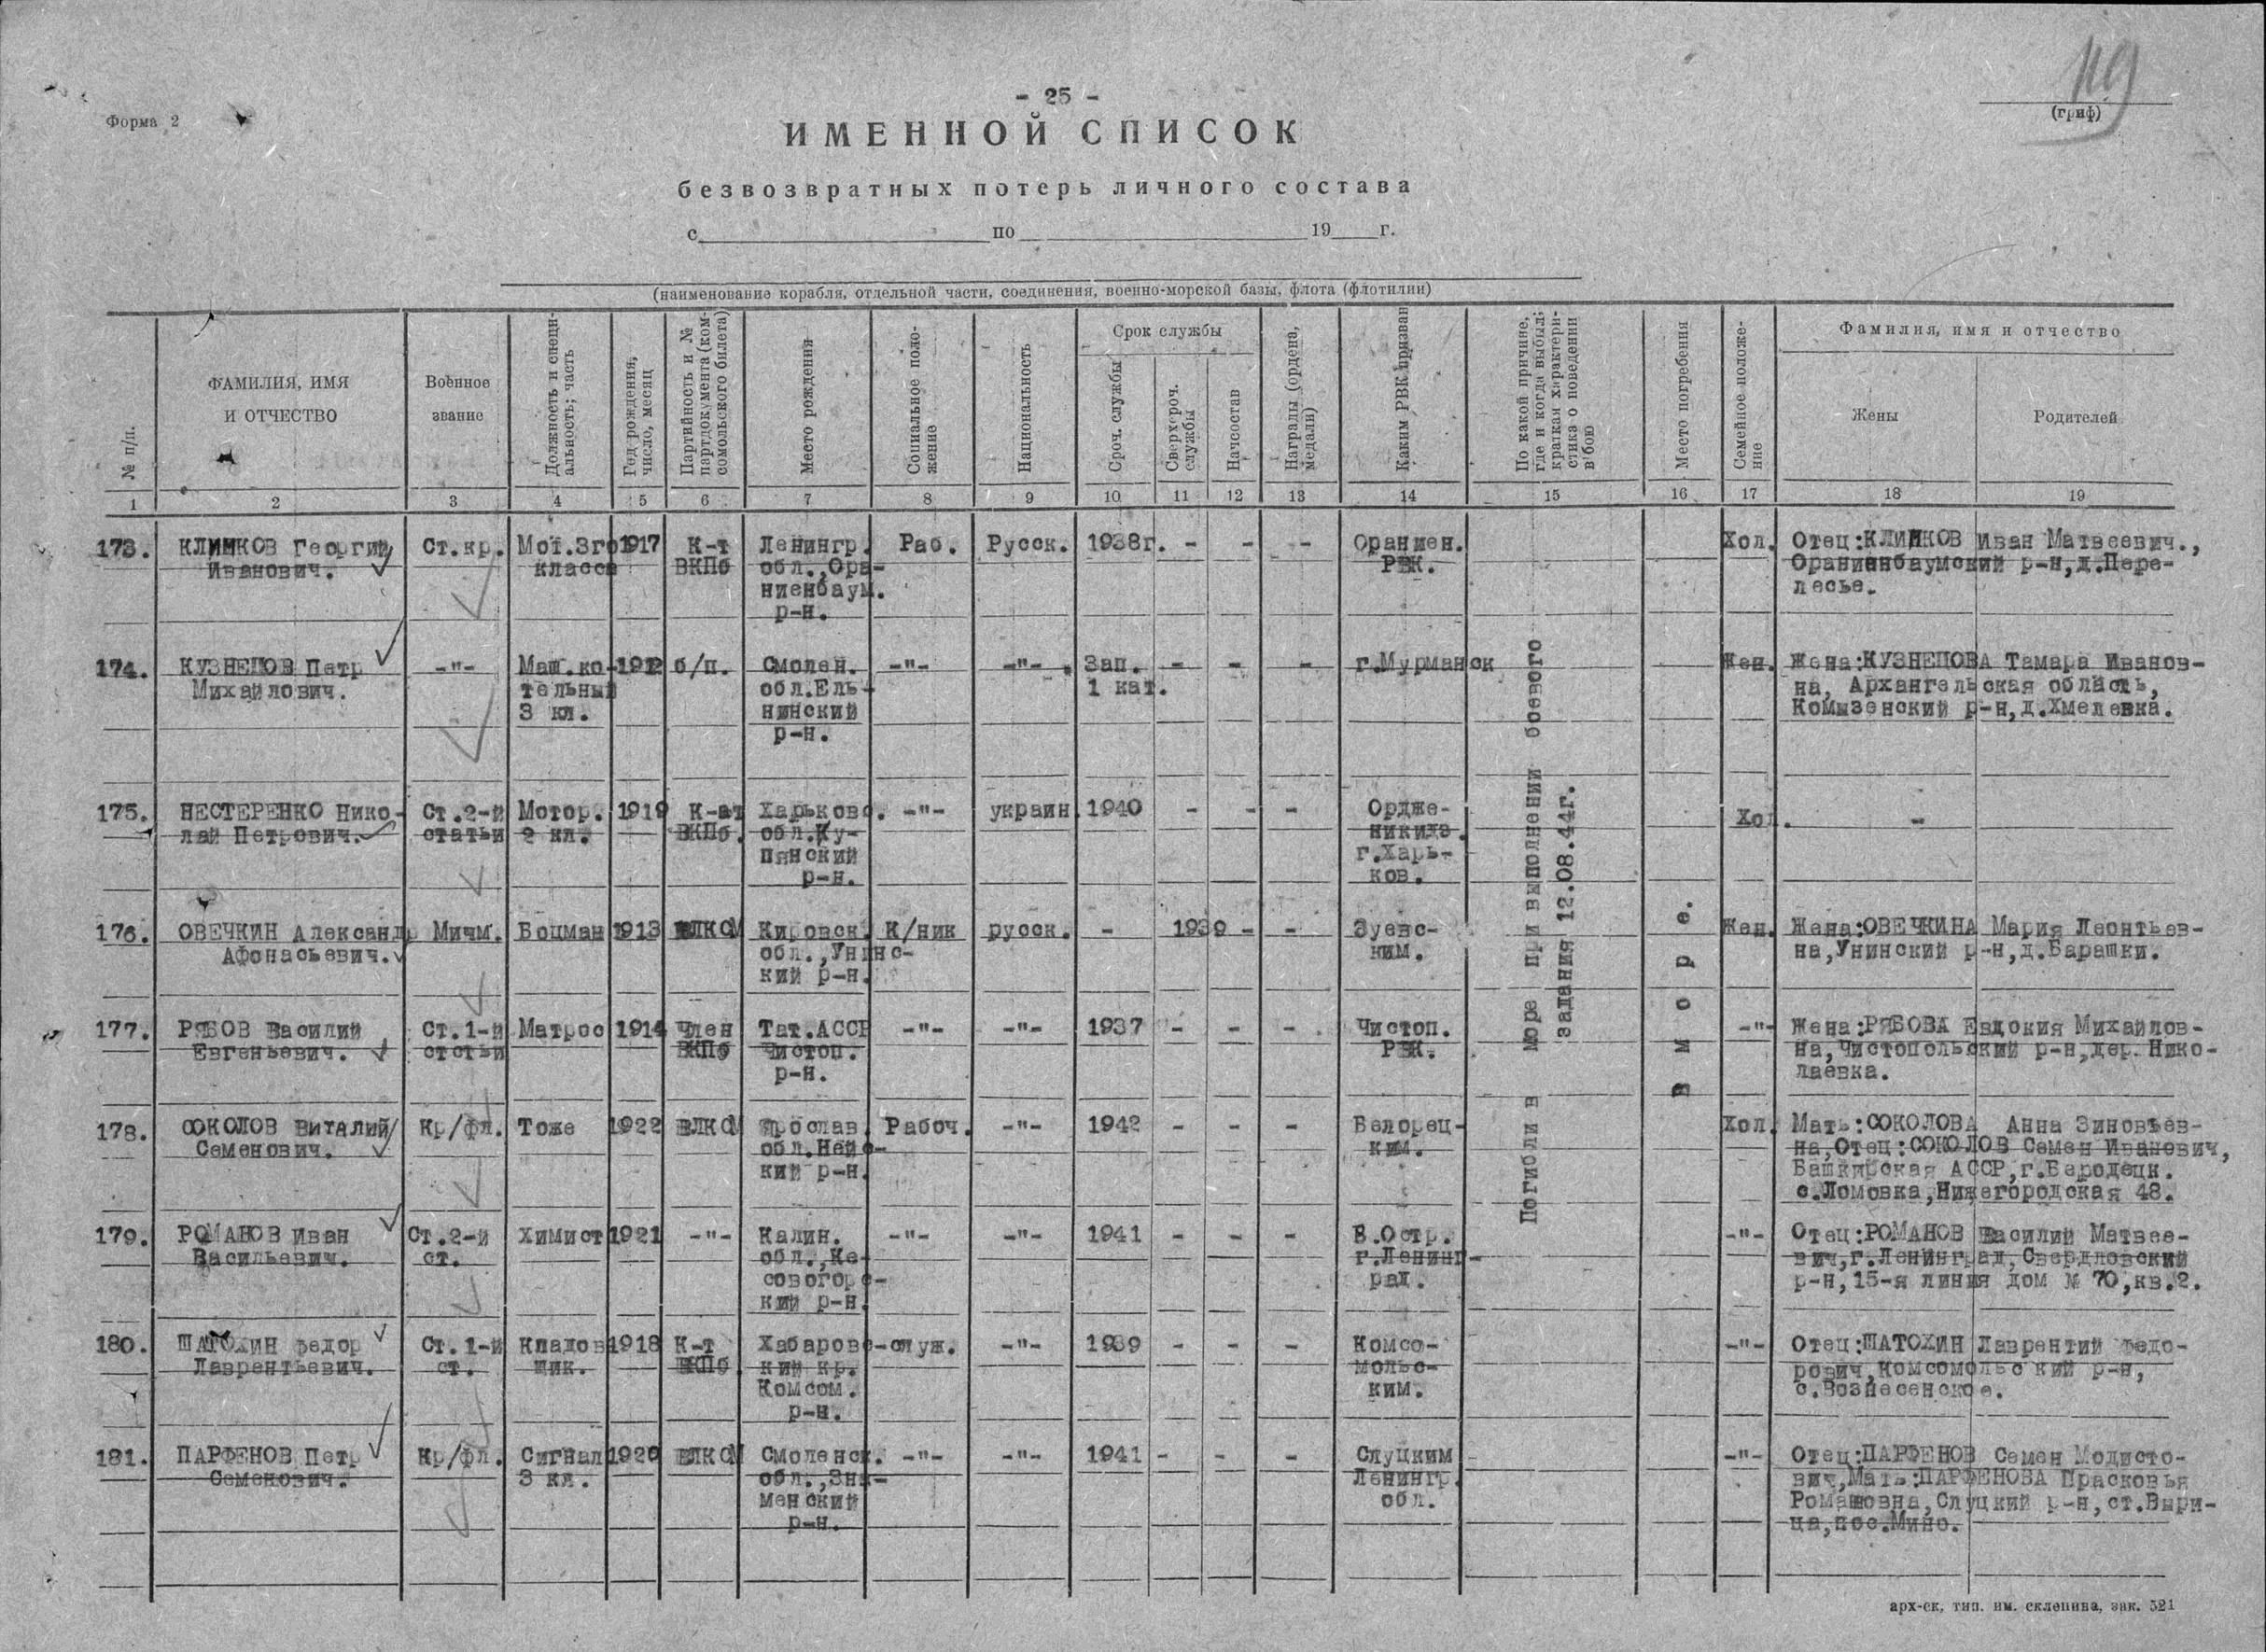 - 25 -
119
Форма 2
(гриф)
ИМЕННОЙ СПИСОК
безвозвратных потерь личного состава
с по 19 г.
(наименование корабля, отдельной части, соединения, военно-морской базы, флота (флотилии)
№ п/п.
ФАМИЛИЯ, ИМЯ
И ОТЧЕСТВО
Военное
звание
Должность и специ-
альность; часть
Год рождения,
число, месяц
Партийность и №
партдокумента (ком-
сомольского билета)
Место рождения
Социальное поло-
жение
Национальность
Срок службы
Сроч. службы
Сверхсроч.
службы
Начсостав
Награды (ордена,
медали)
Каким РВК призван
По какой причине,
где и когда выбыл;
краткая характери-
стика о поведении
в бою
Место погребения
Семейное положе-
ние
Фамилия, имя и отчество
Жены
Родителей
1 2 3 4 5 6 7 8 9 10 11 12 13 14 15 16 17 18 19
173. КЛИМКОВ Георгий Ст.кр. Мот.3го 1917 К-т Ленингр. Раб. Русск. 1938г. - - - Ораниен. Хол. Отец:КЛИМКОВ Иван Матвеевич.,
Иванович. класса ВКПб обл.,Ора- РВК. Ораниенбаумский р-н,д.Пере-
ниенбаум. лесье.
р-н.
174. КУЗНЕЦОВ Петр -"- Маш.ко- 1912 б/п. Смолен. -"- -"- . Зап. - - - г.Мурманск Жен. Жена:КУЗНЕЦОВА Тамара Иванов-
Михайлович. тельный обл.Ель- 1 кат. на, Архангельская область,
3 кл. нинский Комызенский р-н,д.Хмелевка.
р-н.
175. НЕСТЕРЕНКО Нико- Ст.2-й Мотор. 1919 К-ат Харьковс. -"- украин. 1940 - - - Ордже- Хол. -
лай Петрович. статьи 2 кл. ВКПб. обл.Ку- никидз.
пянский г.Харь-
р-н. ков.
176. ОВЕЧКИН Александр Мичм. Боцман 1913 ВЛКСМ Кировск. К/ник русск. - 1939 - - Зуевс- Жен. Жена:ОВЕЧКИНА Мария Леонтьев-
Афонасьевич. обл.,Унинс- ким. на,Унинский р-н,д.Барашки.
кий р-н.
177. РЯБОВ Василий Ст.1-й Матрос 1914 Член Тат.АССР -"- -"- 1937 - - - Чистоп. -"- Жена:РЯБОВА Евдокия Михайлов-
Евгеньевич. стстьи ВКПб Чистоп. РВК. на,Чистопольский р-н,дер.Нико-
р-н. лаевка.
178. СОКОЛОВ Виталий Кр/фл. Тоже 1922 ВЛКСМ Ярослав. Рабоч. -"- 1942 - - - Белорец- Хол. Мать:СОКОЛОВА Анна Зиновьев-
Семенович. обл.Ней с- ким. на,Отец:СОКОЛОВ Семен Иванович,
кий р-н. Башкирская АССР,г.Беродецк.
с.Ломовка,Нижегородская 48.
179. РОМАНОВ Иван Ст.2-й Химист 1921 -"- Калин. -"- -"- 1941 - - - В.Остр. -"- Отец:РОМАНОВ Василий Матвее-
Васильевич. ст. обл.,Ке- г.Ленинг- вич,г.Ленинград,Свердловский
совогорс- рад. р-н,15-я линия дом № 70,кв.2.
кий р-н.
180. ШАТОХИН Федор Ст.1-й Кладов 1918 К-т Хабаровс- служ. -"- 1939 - - - Комсо- -"- Отец:ШАТОХИН Лаврентий Федо-
Лаврентьевич. ст. щик. ВКПб кий кр. мольс- рович,Комсомольский р-н,
Комсом. ким. с.Вознесенское.
р-н.
181. ПАРФЕНОВ Петр Кр/фл. Сигнал 1920 ВЛКСМ Смоленск. -"- -"- 1941 - - - Слуцким -"- Отец:ПАРФЕНОВ Семен Модисто-
Семенович. 3 кл. обл.,Зна- Ленингр. вич,Мать:ПАРФЕНОВА Прасковья
менский обл. Романовна,Слуцкий р-н,ст.Выри-
р-н. ца,пос.Мино.
Погибли в море при выполнении боевого
задания 12.08.44г.
В море.
арх-ск, тип. им. склепина, зак. 521